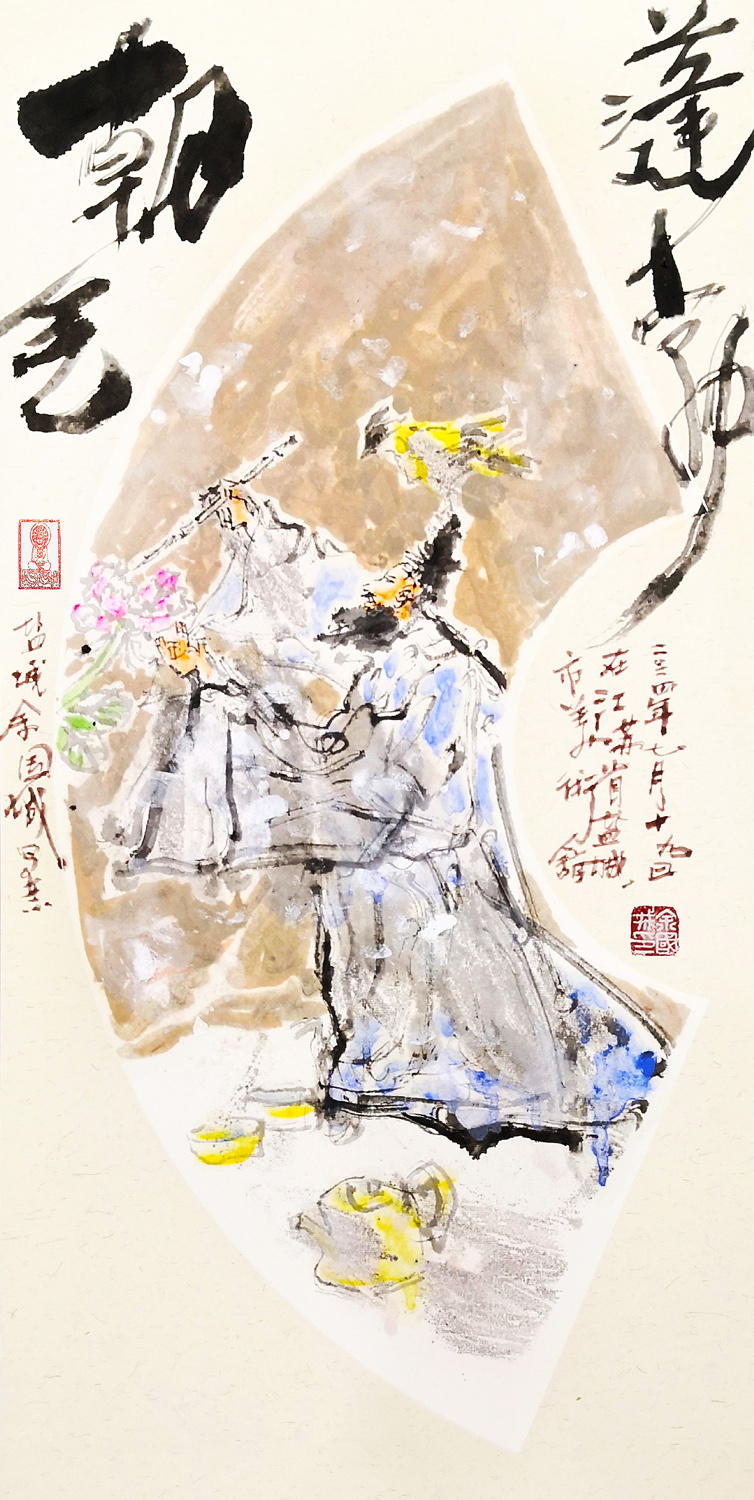 蓬勃
朝气
二〇二四年七月十九日
在江苏省盐城
市美术馆
盐城余国城写意